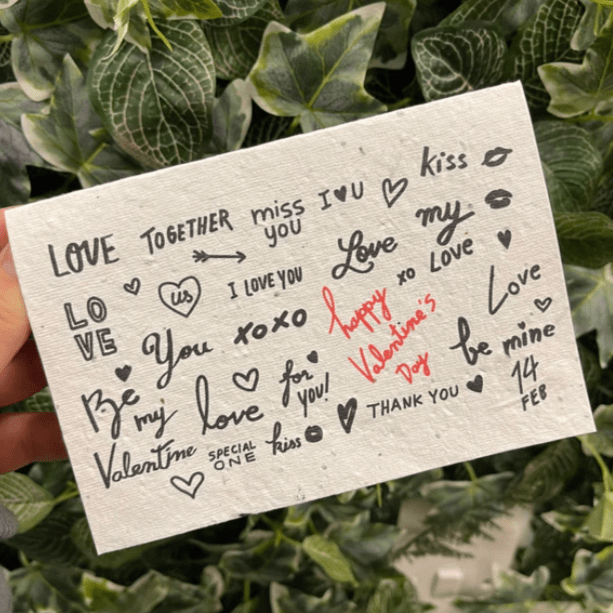 LOVE TOGETHER miss you I ♥ U kiss
LOVE us I LOVE YOU Love my
Be You xoxo happy xo LOVE
my love for you! Valentine's Day be mine Love
Valentine SPECIAL ONE kiss THANK YOU 14 FEB